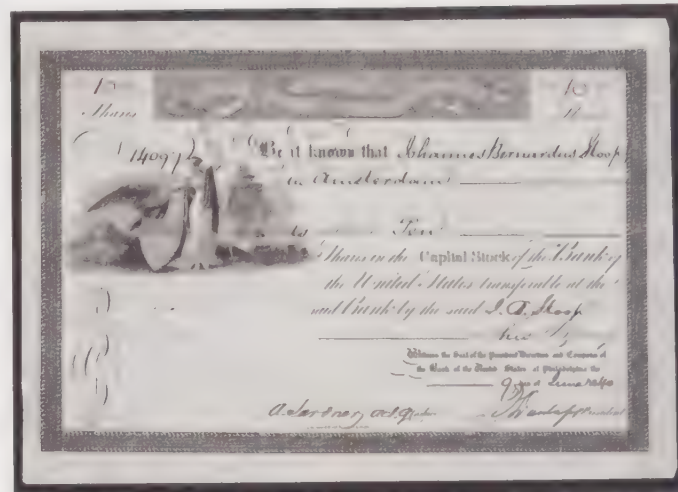 10 10
Shares
14097 Be it known that Johannes Bernardus Stoop
in Amsterdam
is Ten
Shares in the Capital Stock of the Bank of
the United States transferable at the
said Bank by the said J. B. Stoop
Witness the Seal of the President Directors and Company of
the Bank of the United States at Philadelphia the
9 day of June 1840
A. Lardner